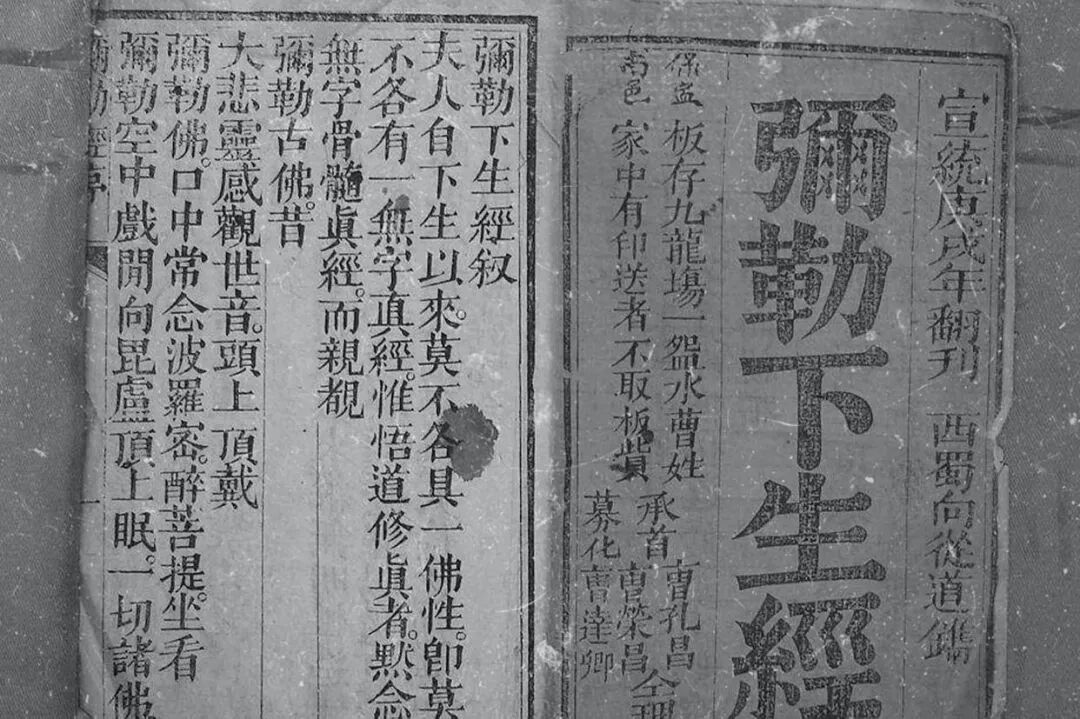 宣統庚戌年翻刊 西蜀向從道鐫
彌勒下生經
保盂板存九龍塲一盌水曹姓
家中有印送者不取板貲
承首 曹孔昌
曹榮昌 仝
募化 曹達卿
彌勒下生經叙
夫人自下生以來。莫不各具一佛性。卽莫
不各有一無字眞經。惟悟道修眞者。默念
無字骨髓眞經。而親覩
彌勒古佛。昔
大悲靈感觀世音。頭上頂戴
彌勒佛。口中常念波羅密。醉菩提。坐看
彌勒空中戲。閒向毘盧頂上眠。一切諸佛
彌勒經
一